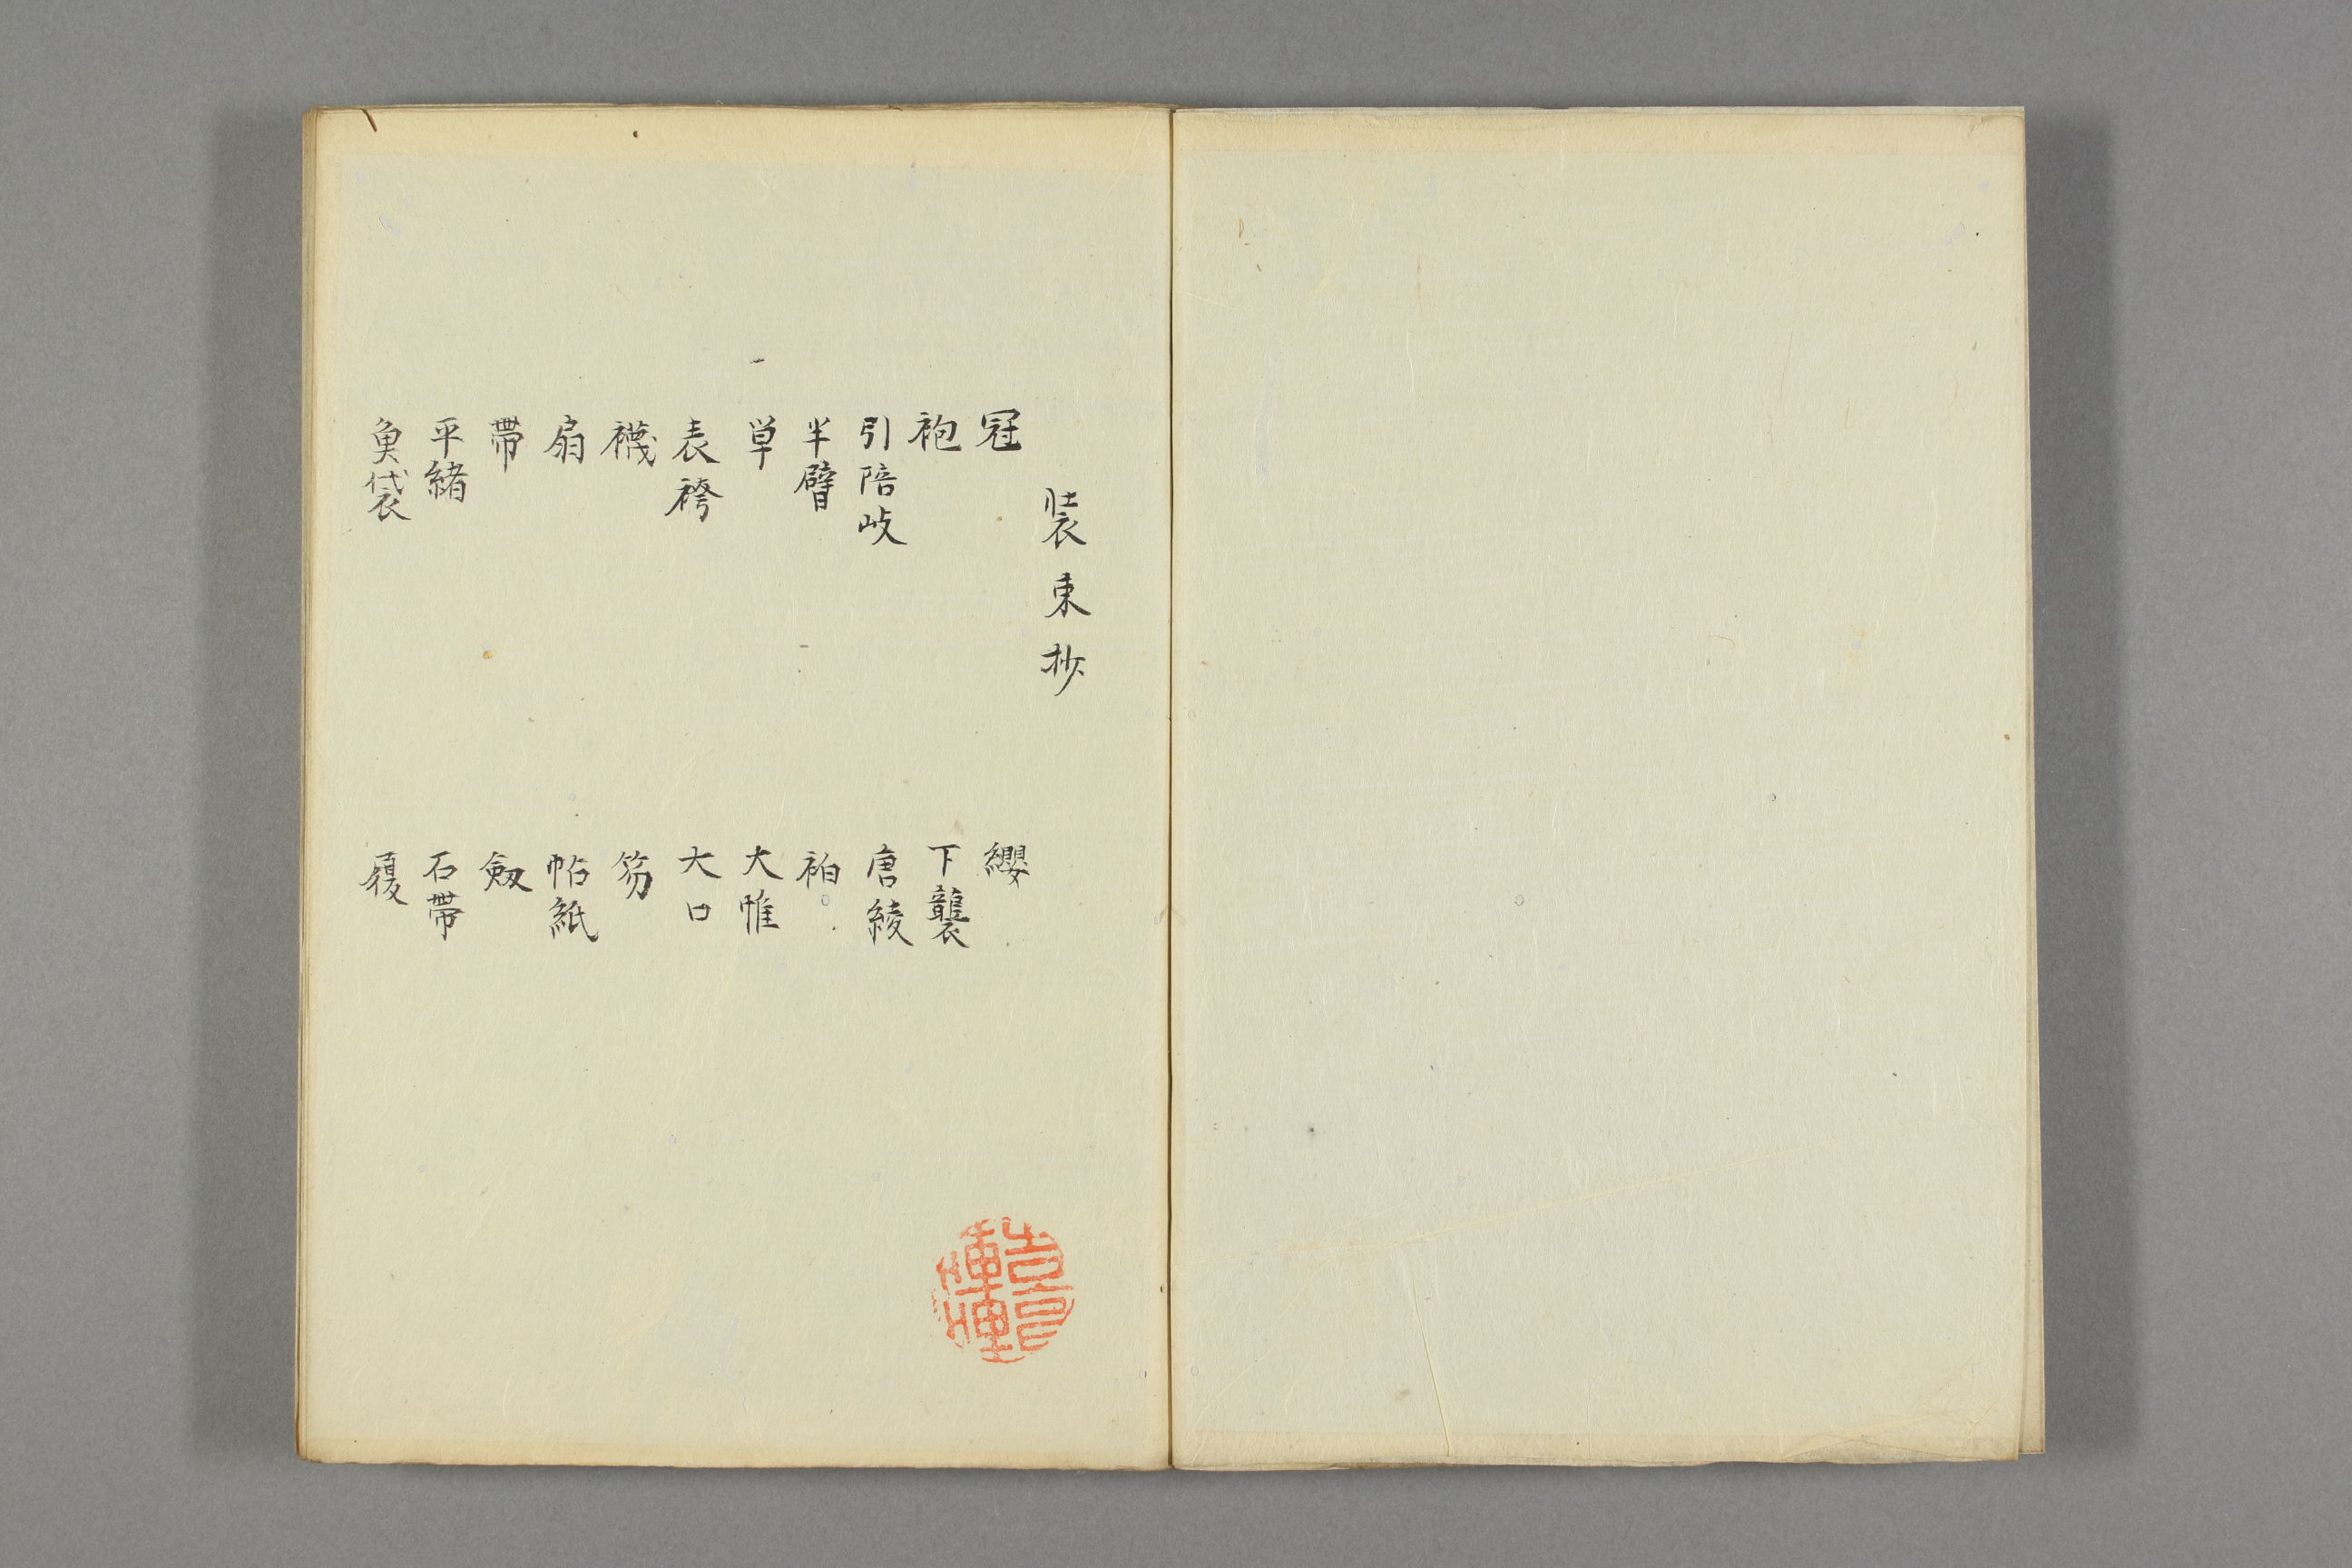 装束抄
冠
纓
袍
下襲
引陪岐
唐綾
半臂
袙
単
大帷
表袴
大口
襪
笏
扇
帖紙
帶
劔
平緒
石帶
魚袋
履